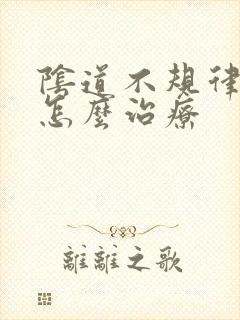 陰道不規律
怎麼治療
離離之歌